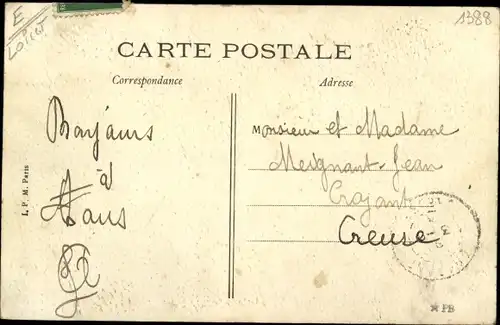 E
Loiret
1388
CARTE POSTALE
Correspondance
Adresse
Bonjours
à
tous
Monsieur et Madame
Meignant Jean
Crozant
Creuse
L. P. M. Paris
PB